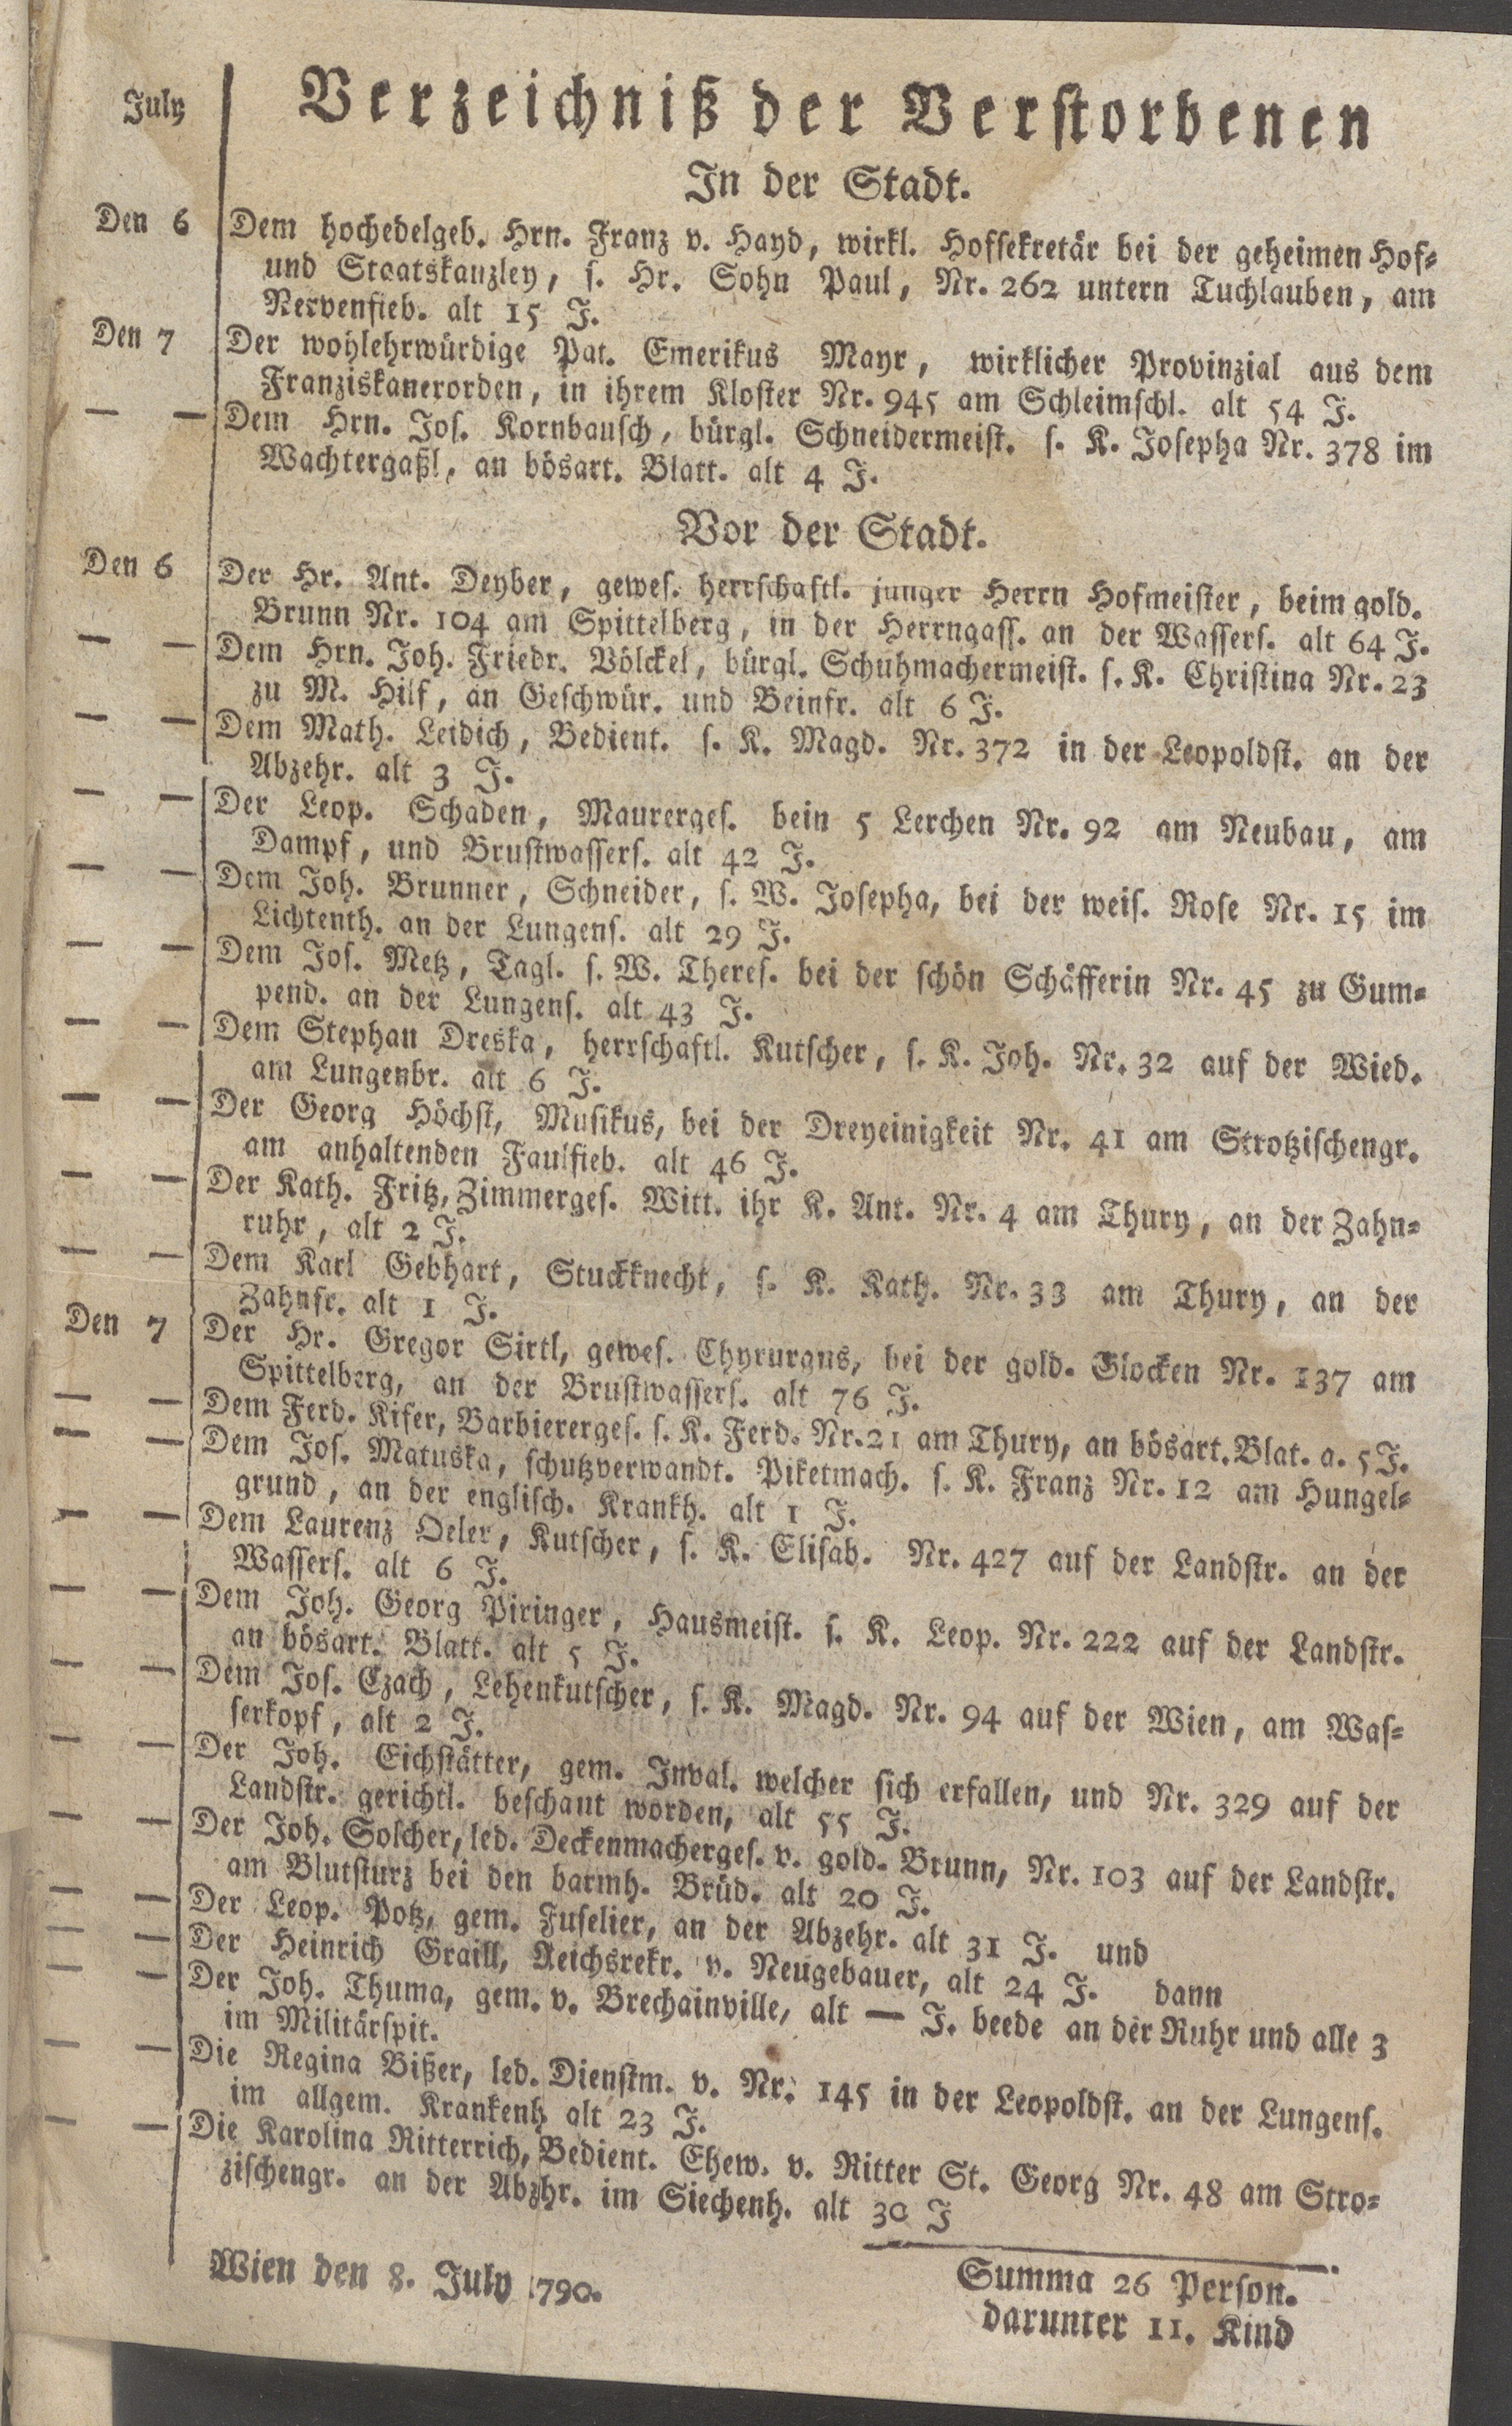 July
Verzeichniß der Verstorbenen
In der Stadt.
Den 6 Dem hochedelgeb. Hrn. Franz v. Hayd, wirkl. Hofsekretär bei der geheimen Hof-
und Staatskanzley, s. Hr. Sohn Paul, Nr. 262 untern Tuchlauben, am
Nervenfieb. alt 15 J.
Den 7 Der wohlehrwürdige Pat. Emerikus Mayr, wirklicher Provinzial aus dem
Franziskanerorden, in ihrem Kloster Nr. 945 am Schleimschl. alt 54 J.
— — Dem Hrn. Jos. Kornbausch, bürgl. Schneidermeist. s. K. Josepha Nr. 378 im
Wachtergaßl, an bösart. Blatt. alt 4 J.
Vor der Stadt.
Den 6 Der Hr. Ant. Deyber, gewes. herrschaftl. junger Herrn Hofmeister, beim gold.
Brunn Nr. 104 am Spittelberg, in der Herrngass. an der Wassers. alt 64 J.
— — Dem Hrn. Joh. Friedr. Völckel, bürgl. Schuhmachermeist. s. K. Christina Nr. 23
zu M. Hilf, an Geschwür. und Beinfr. alt 6 J.
— — Dem Math. Leidich, Bedient. s. K. Magd. Nr. 372 in der Leopoldst. an der
Abzehr. alt 3 J.
— — Der Leop. Schaden, Maurerges. bein 5 Lerchen Nr. 92 am Neubau, am
Dampf, und Brustwassers. alt 42 J.
— — Dem Joh. Brunner, Schneider, s. W. Josepha, bei der weis. Rose Nr. 15 im
Lichtenth. an der Lungens. alt 29 J.
— — Dem Jos. Metz, Tagl. s. W. Theres. bei der schön Schäfferin Nr. 45 zu Gum-
pend. an der Lungens. alt 43 J.
— — Dem Stephan Dreska, herrschaftl. Kutscher, s. K. Joh. Nr. 32 auf der Wied.
am Lungenbr. alt 6 J.
— — Der Georg Höchst, Musikus, bei der Dreyeinigkeit Nr. 41 am Strotzischengr.
am anhaltenden Faulfieb. alt 46 J.
— — Der Kath. Fritz, Zimmerges. Witt. ihr K. Ant. Nr. 4 am Thury, an der Zahn-
ruhr, alt 2 J.
— — Dem Karl Gebhart, Stuckknecht, s. K. Kath. Nr. 33 am Thury, an der
Zahnfr. alt 1 J.
Den 7 Der Hr. Gregor Sirtl, gewes. Chyrurgus, bei der gold. Glocken Nr. 137 am
Spittelberg, an der Brustwassers. alt 76 J.
— — Dem Ferd. Kifer, Barbiererges. s. K. Ferd. Nr. 21 am Thury, an bösart. Blat. a. 5 J.
— — Dem Jos. Matuska, schutzverwandt. Piketmach. s. K. Franz Nr. 12 am Hungel-
grund, an der englisch. Krankh. alt 1 J.
— — Dem Laurenz Oeler, Kutscher, s. K. Elisab. Nr. 427 auf der Landstr. an der
Wassers. alt 6 J.
— — Dem Joh. Georg Piringer, Hausmeist. s. K. Leop. Nr. 222 auf der Landstr.
an bösart. Blatt. alt 5 J.
— — Dem Jos. Czach, Lehenkutscher, s. K. Magd. Nr. 94 auf der Wien, am Was-
serkopf, alt 2 J.
— — Der Joh. Eichstätter, gem. Inval. welcher sich erfallen, und Nr. 329 auf der
Landstr. gerichtl. beschaut worden, alt 55 J.
— — Der Joh. Solcher, led. Deckenmacherges. v. gold. Brunn, Nr. 103 auf der Landstr.
am Blutsturz bei den barmh. Brüd. alt 20 J.
— — Der Leop. Potz, gem. Fuselier, an der Abzehr. alt 31 J. und
— — Der Heinrich Graill, Reichsrekr. v. Neugebauer, alt 24 J. dann
— — Der Joh. Thuma, gem. v. Brechainville, alt — J. beede an der Ruhr und alle 3
im Militärspit.
— — Die Regina Bißer, led. Dienstm. v. Nr. 145 in der Leopoldst. an der Lungens.
im allgem. Krankenh alt 23 J.
— — Die Karolina Ritterrich, Bedient. Ehew. v. Ritter St. Georg Nr. 48 am Stro-
zischengr. an der Abzhr. im Siechenh. alt 30 J
Wien den 8. July 1790.
Summa 26 Person.
darunter 11. Kind